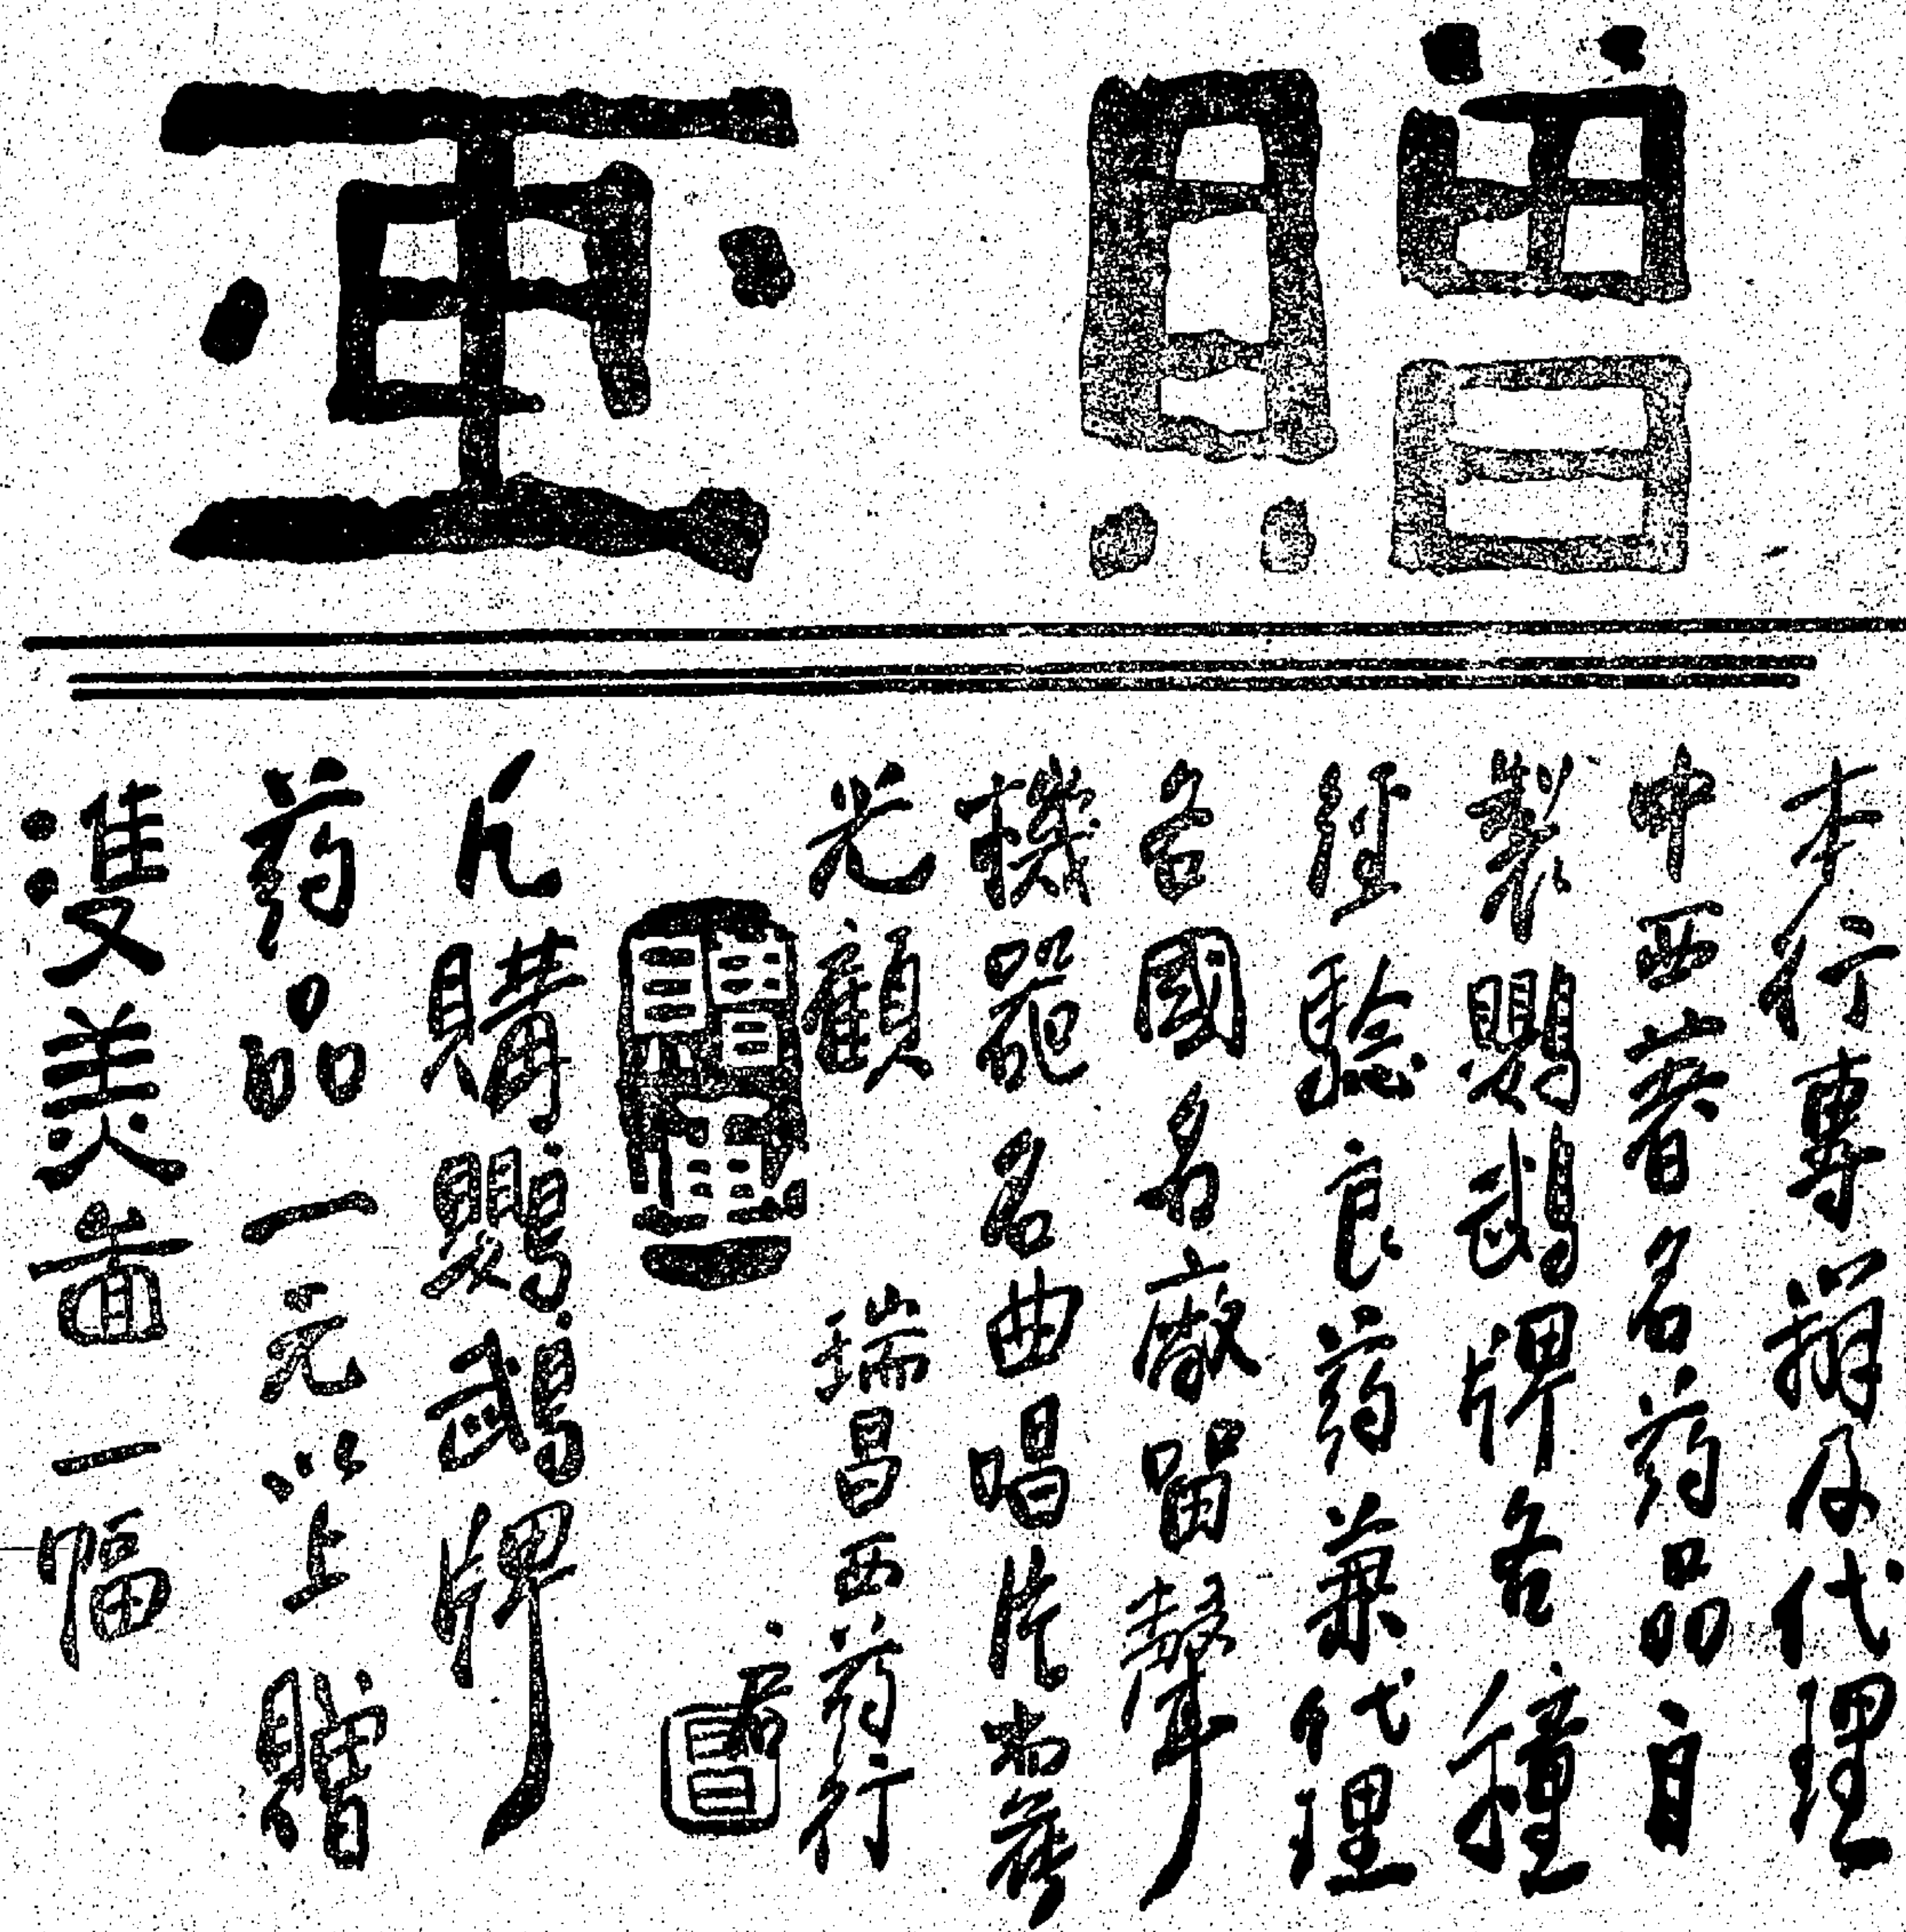 贈画
本行專辦及代理
中西著名药品自
製鸚鵡牌各種
経驗良药兼代理
各國名廠留聲
機器名曲唱片尚
光顧 瑞昌西药行
启
凡購鸚鵡牌
药品一元以上贈
雙美畫一幅